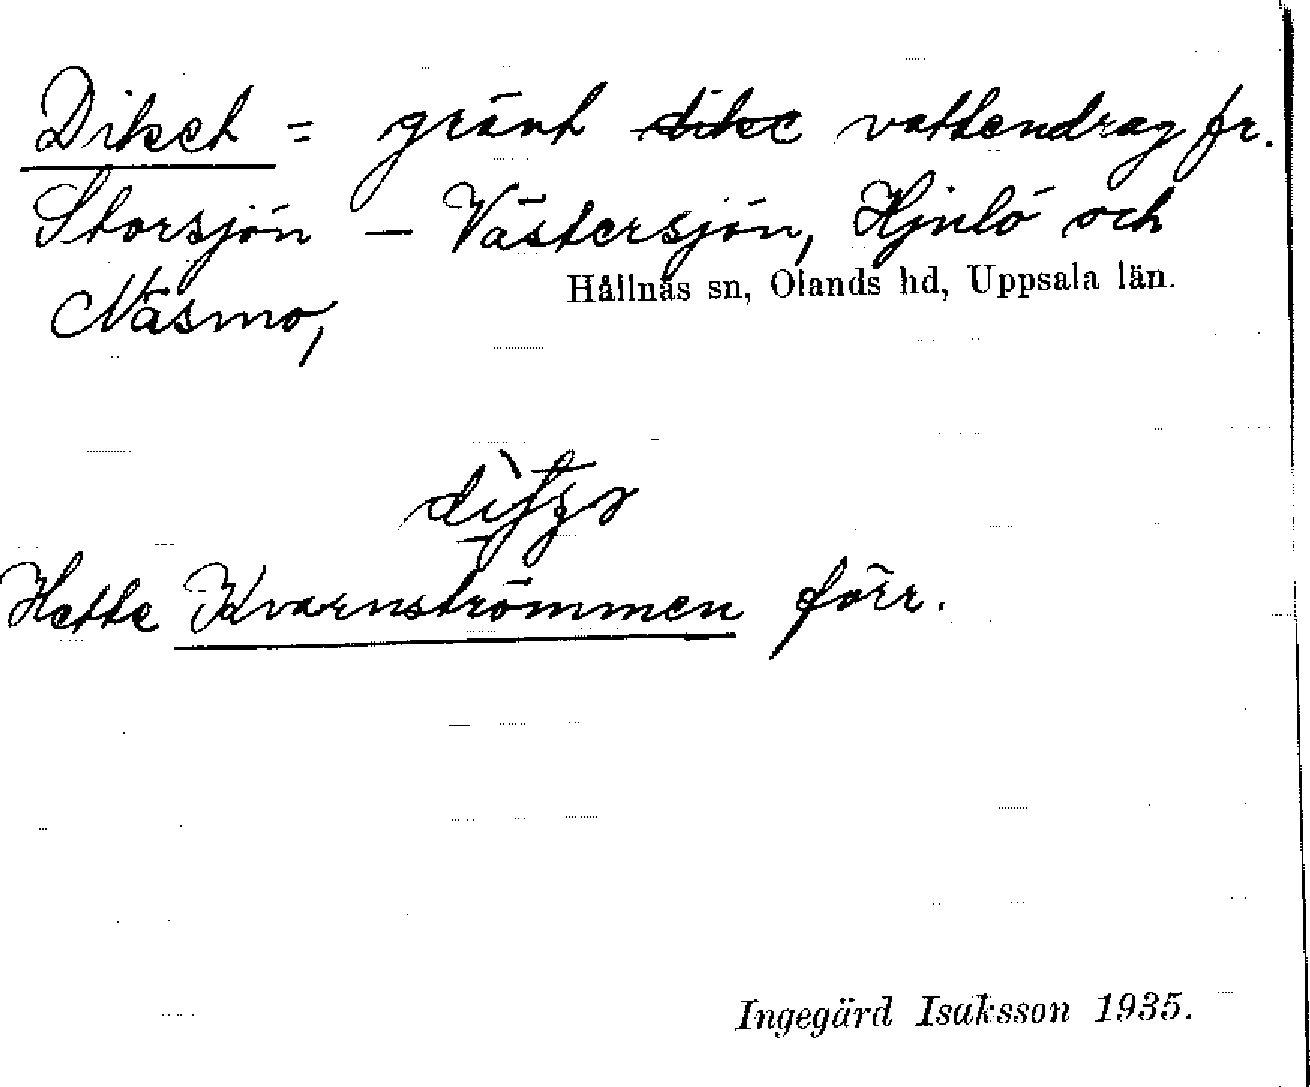 Diket = grävt dike vattendrag fr.
Storsjön – Västersjön, Hjulö och
Näsmo,
Hållnäs sn, Olands hd, Uppsala län.
Hette Kvarnströmmen förr.
Ingegärd Isaksson 1935.